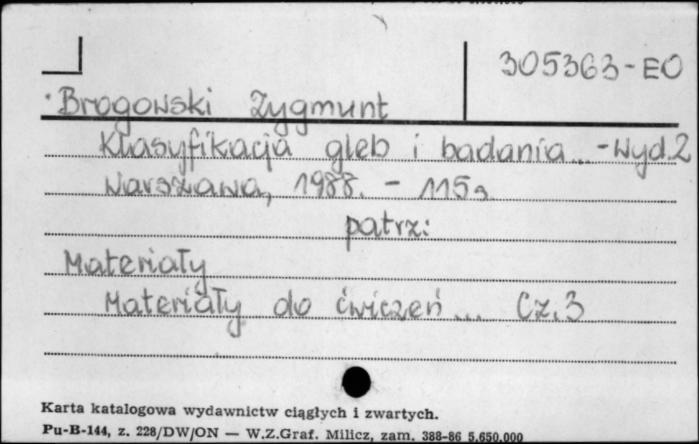 305363-EO
Brogowski Zygmunt
Klasyfikacja gleb i badania... - Wyd.2
Warszawa, 1988. - 115 s.
patrz:
Materiały
Materiały do ćwiczeń... Cz.3
Karta katalogowa wydawnictw ciągłych i zwartych.
Pu-B-144, z. 228/DW/ON — W.Z.Graf. Milicz, zam. 388-86 5.650.000